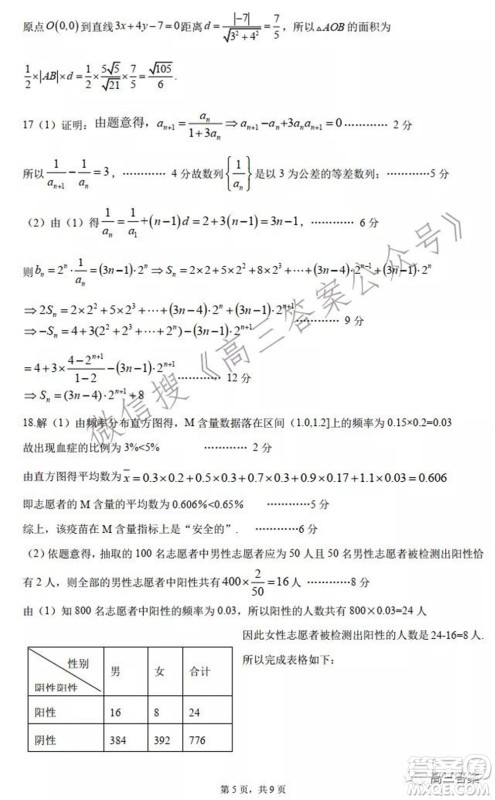 原点O(0,0)到直线3x+4y-7=0距离d=|-7|/√(3²+4²)=7/5，所以△AOB的面积为
1/2×|AB|×d=1/2×5√5/√21×7/5=√105/6.
17（1）证明：由题意得，aₙ₊₁=aₙ/(1+3aₙ)⇒aₙ₊₁-aₙ+3aₙaₙ₊₁=0 ………… 2 分
所以1/aₙ₊₁-1/aₙ=3，………… 4 分故数列{1/aₙ}是以 3 为公差的等差数列；…………5 分
（2）由（1）得1/aₙ=1/a₁+(n-1)d=2+3(n-1)=3n-1，………… 6 分
则bₙ=2ⁿ·1/aₙ=(3n-1)·2ⁿ⇒Sₙ=2×2+5×2²+8×2³+…+(3n-4)·2ⁿ⁻¹+(3n-1)·2ⁿ
⇒2Sₙ=2×2²+5×2³+…+(3n-4)·2ⁿ+(3n-1)·2ⁿ⁺¹
⇒-Sₙ=4+3(2²+2³+…+2ⁿ)-(3n-1)·2ⁿ⁺¹ ………… 9 分
=4+3×(4-2ⁿ⁺¹)/(1-2)-(3n-1)·2ⁿ⁺¹
⇒Sₙ=(3n-4)·2ⁿ⁺¹+8 ………… 12 分
18.解（1）由频率分布直方图得，M 含量数据落在区间（1.0,1.2]上的频率为 0.15×0.2=0.03
故出现血症的比例为 3%<5% ………… 2 分
由直方图得平均数为x̄=0.3×0.2+0.5×0.3+0.7×0.3+0.9×0.17+1.1×0.03=0.606
即志愿者的 M 含量的平均数为 0.606%<0.65% …………5 分
综上，该疫苗在 M 含量指标上是“安全的”. …………6 分
（2）依题意得，抽取的 100 名志愿者中男性志愿者应为 50 人且 50 名男性志愿者被检测出阳性恰
有 2 人，则全部的男性志愿者中阳性共有400×2/50=16人 …………8 分
由（1）知 800 名志愿者中阳性的频率为 0.03，所以阳性的人数共有 800×0.03=24 人
因此女性志愿者被检测出阳性的人数是 24-16=8 人.
所以完成表格如下：
性别 男 女 合计
阴性阳性
阳性 16 8 24
阴性 384 392 776
第 5 页，共 9 页
微信搜《高三答案公众号》
高三答案